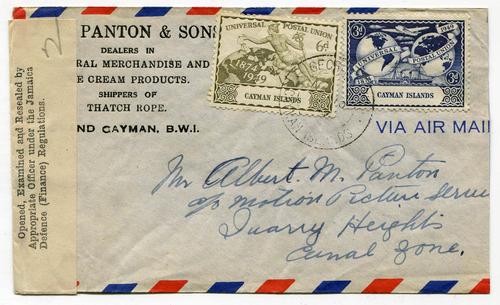 PANTON & SONS
DEALERS IN
RAL MERCHANDISE AND
CE CREAM PRODUCTS.
SHIPPERS OF
THATCH ROPE.
ND CAYMAN, B.W.I.
Opened, Examined and Resealed by
Appropriate Officer under the Jamaica
Defence (Finance) Regulations.
UNIVERSAL POSTAL UNION
6d
1874
1949
CAYMAN ISLANDS
1949
3d
UNIVERSAL POSTAL UNION
1874
3d
CAYMAN ISLANDS
GEO
VIA AIR MAI
Mr Albert M. Panton
c/o Motion Picture Servic
Quarry Heights
Canal Zone.